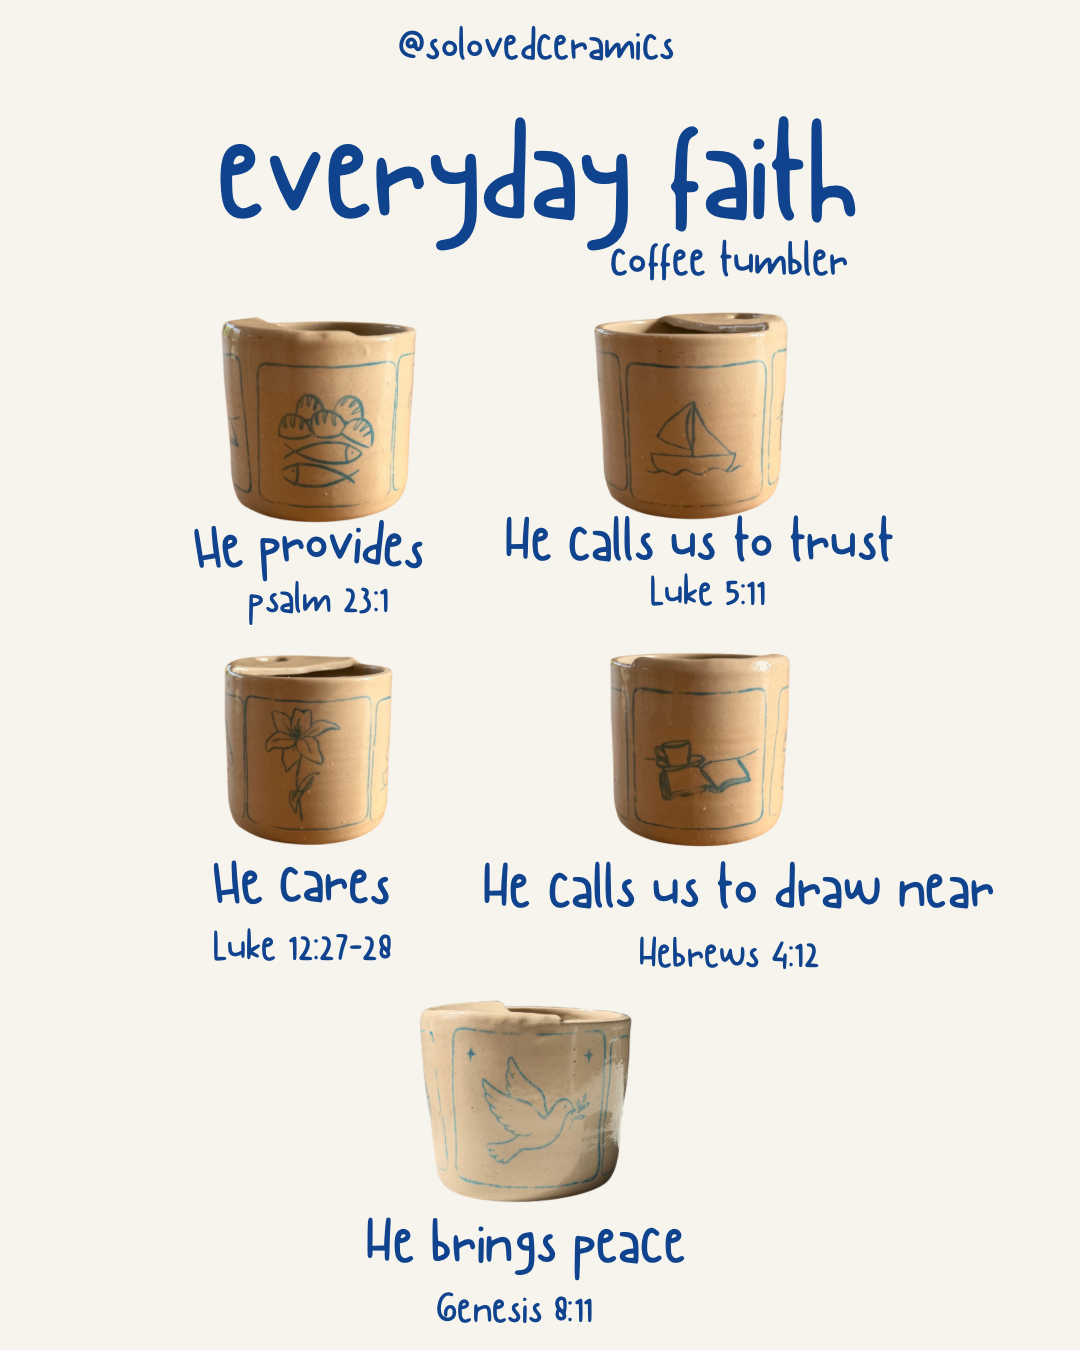 @solovedceramics
everyday faith
coffee tumbler
He provides
psalm 23:1
He calls us to trust
Luke 5:11
He cares
Luke 12:27-28
He calls us to draw near
Hebrews 4:12
He brings peace
Genesis 8:11